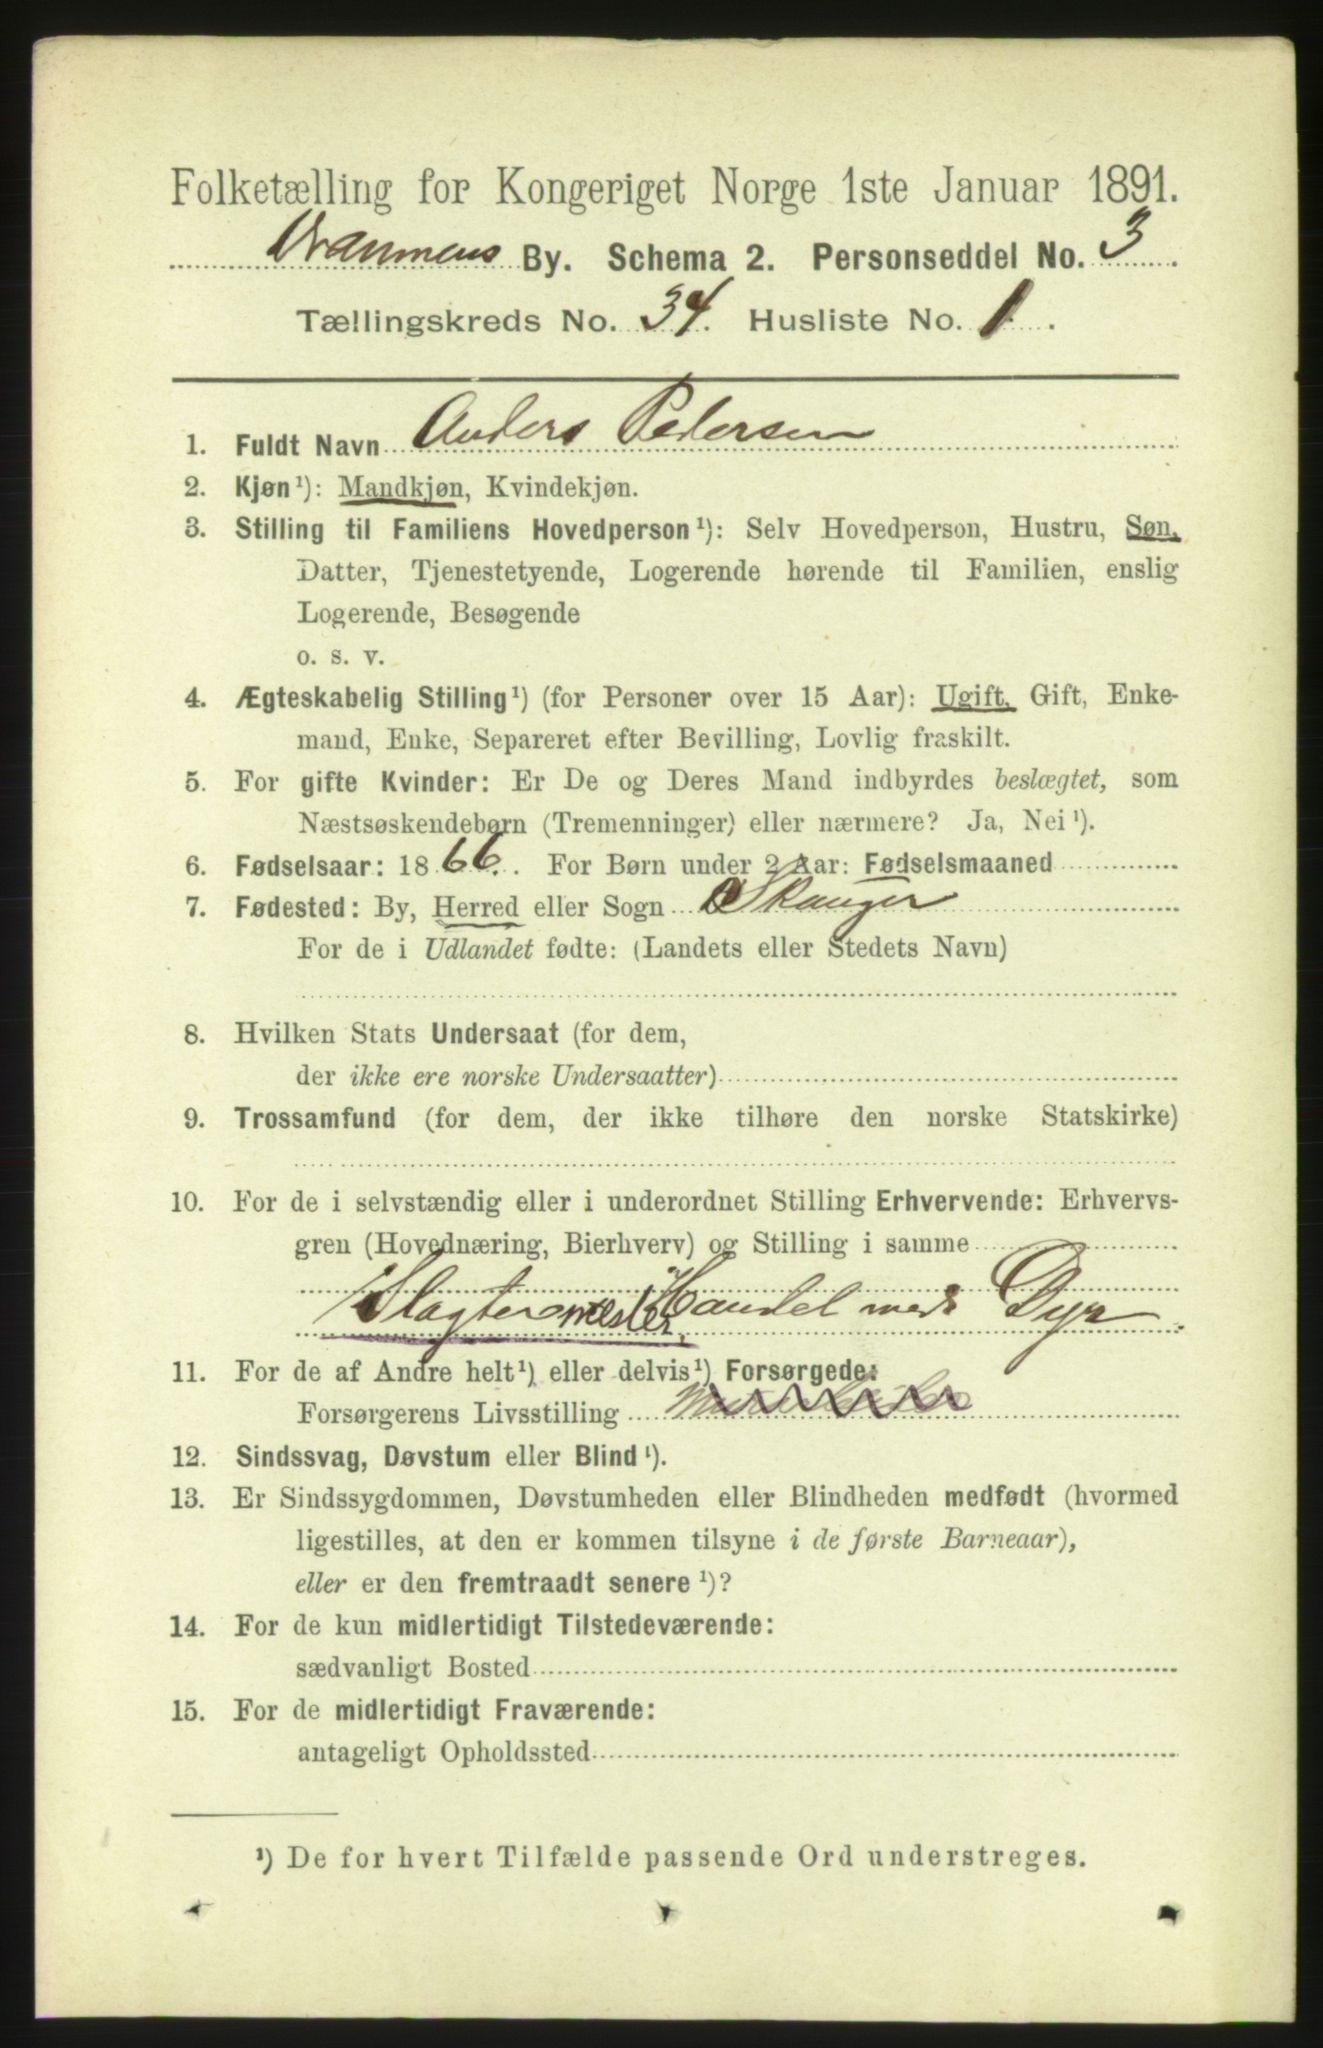 Folketælling for Kongeriget Norge 1ste Januar 1891.
Drammens By. Schema 2. Personseddel No. 3
Tællingskreds No. 34. Husliste No. 1.
1. Fuldt Navn Anders Pedersen
2. Kjøn¹): Mandkjøn, Kvindekjøn.
3. Stilling til Familiens Hovedperson¹): Selv Hovedperson, Hustru, Søn,
Datter, Tjenestetyende, Logerende hørende til Familien, enslig
Logerende, Besøgende
o. s. v.
4. Ægteskabelig Stilling¹) (for Personer over 15 Aar): Ugift, Gift, Enke-
mand, Enke, Separeret efter Bevilling, Lovlig fraskilt.
5. For gifte Kvinder: Er De og Deres Mand indbyrdes beslægtet, som
Næstsøskendebørn (Tremenninger) eller nærmere? Ja, Nei¹).
6. Fødselsaar: 1866. For Børn under 2 Aar: Fødselsmaaned
7. Fødested: By, Herred eller Sogn Skauger
For de i Udlandet fødte: (Landets eller Stedets Navn)
8. Hvilken Stats Undersaat (for dem,
der ikke ere norske Undersaatter)
9. Trossamfund (for dem, der ikke tilhøre den norske Statskirke)
10. For de i selvstændig eller i underordnet Stilling Erhvervende: Erhvervs-
gren (Hovednæring, Bierhverv) og Stilling i samme
Slagtermester, Handel med Dyr
11. For de af Andre helt¹) eller delvis¹) Forsørgede:
Forsørgerens Livsstilling
12. Sindssvag, Døvstum eller Blind¹).
13. Er Sindssygdommen, Døvstumheden eller Blindheden medfødt (hvormed
ligestilles, at den er kommen tilsyne i de første Barneaar),
eller er den fremtraadt senere¹)?
14. For de kun midlertidigt Tilstedeværende:
sædvanligt Bosted
15. For de midlertidigt Fraværende:
antageligt Opholdssted
¹) De for hvert Tilfælde passende Ord understreges.